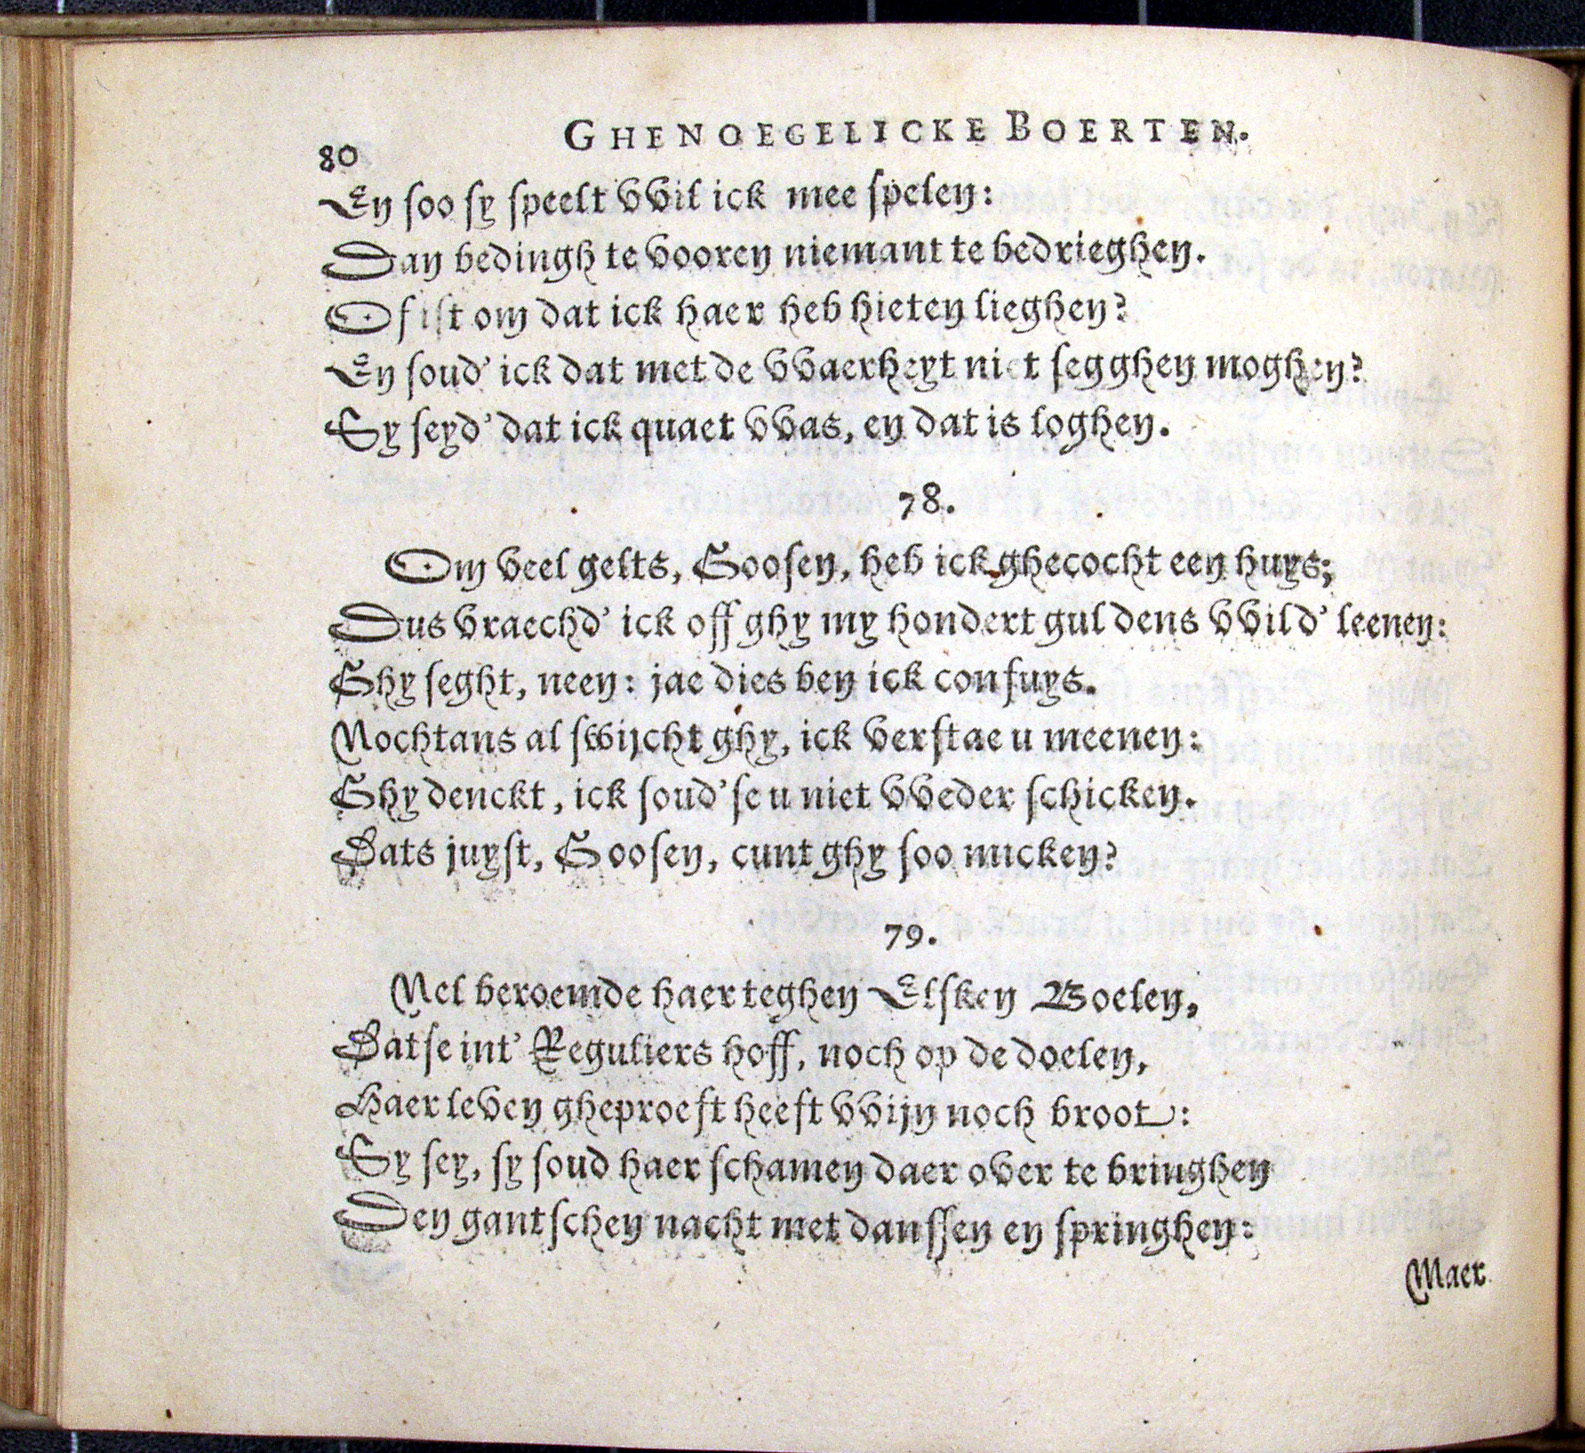 80
GHENOEGELICKE BOERTEN.
En soo sy speelt vvil ick mee spelen:
Dan bedingh te vooren niemant te bedrieghen.
Of ist om dat ick haer heb hieten lieghen?
En soud' ick dat met de vvaerheyt niet segghen moghen?
Sy seyd' dat ick quaet vvas, en dat is loghen.
78.
Om veel gelts, Goosen, heb ick ghecocht een huys;
Dus vraechd' ick off ghy my hondert guldens vvild' leenen:
Ghy seght, neen: jae dies ben ick confuys.
Nochtans al swijcht ghy, ick verstae u meenen:
Ghy denckt, ick soud'se u niet vveder schicken.
Dats juyst, Goosen, cunt ghy soo micken?
79.
Nel beroemde haer teghen Elsken Boelen,
Datse int' Reguliers hoff, noch op de doelen,
Haer leven gheproeft heeft vvijn noch broot:
Sy sey, sy soud haer schamen daer over te bringhen
Den gantschen nacht met danssen en springhen:
Maer